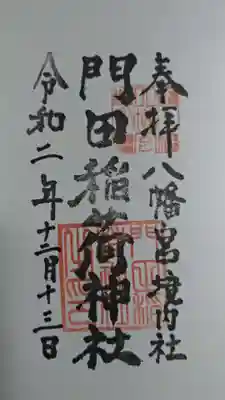 奉拝 八幡宮境内社
門田稲荷神社
令和二年十二月十三日